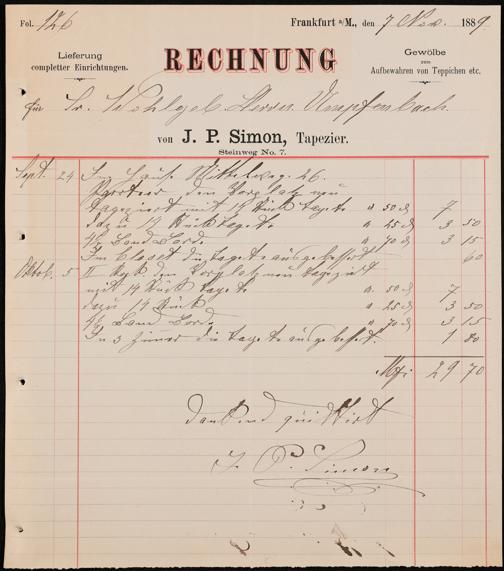 Fol. 126
Frankfurt a/M., den 7 Nov. 1889.
Lieferung
completter Einrichtungen.
RECHNUNG
Gewölbe
zum
Aufbewahren von Teppichen etc.
für Sr. Wohlgeb. Herrn Umpfenbach.
von J. P. Simon, Tapezier.
Steinweg No. 7.
Sept. 24 Im Hause Mittelweg 26.
Parterre den Vorplatz neu
tapeziert mit 14 Stück Tapete a 50 ₰ 7
dazu 14 Stück Tapete a 25 ₰ 3 50
4½ Band Borde a 70 ₰ 3 15
Im Closet die Tapete ausgebessert 60
Oktob. 5 II Stock den Vorplatz neu tapeziert
mit 14 Stück Tapete a 50 ₰ 7
dazu 14 Stück a 25 ₰ 3 50
4½ Band Borde a 70 ₰ 3 15
In 3 Zimmer die Tapete ausgebessert. 1 80
29 70
Dankend quittirt
J. P. Simon